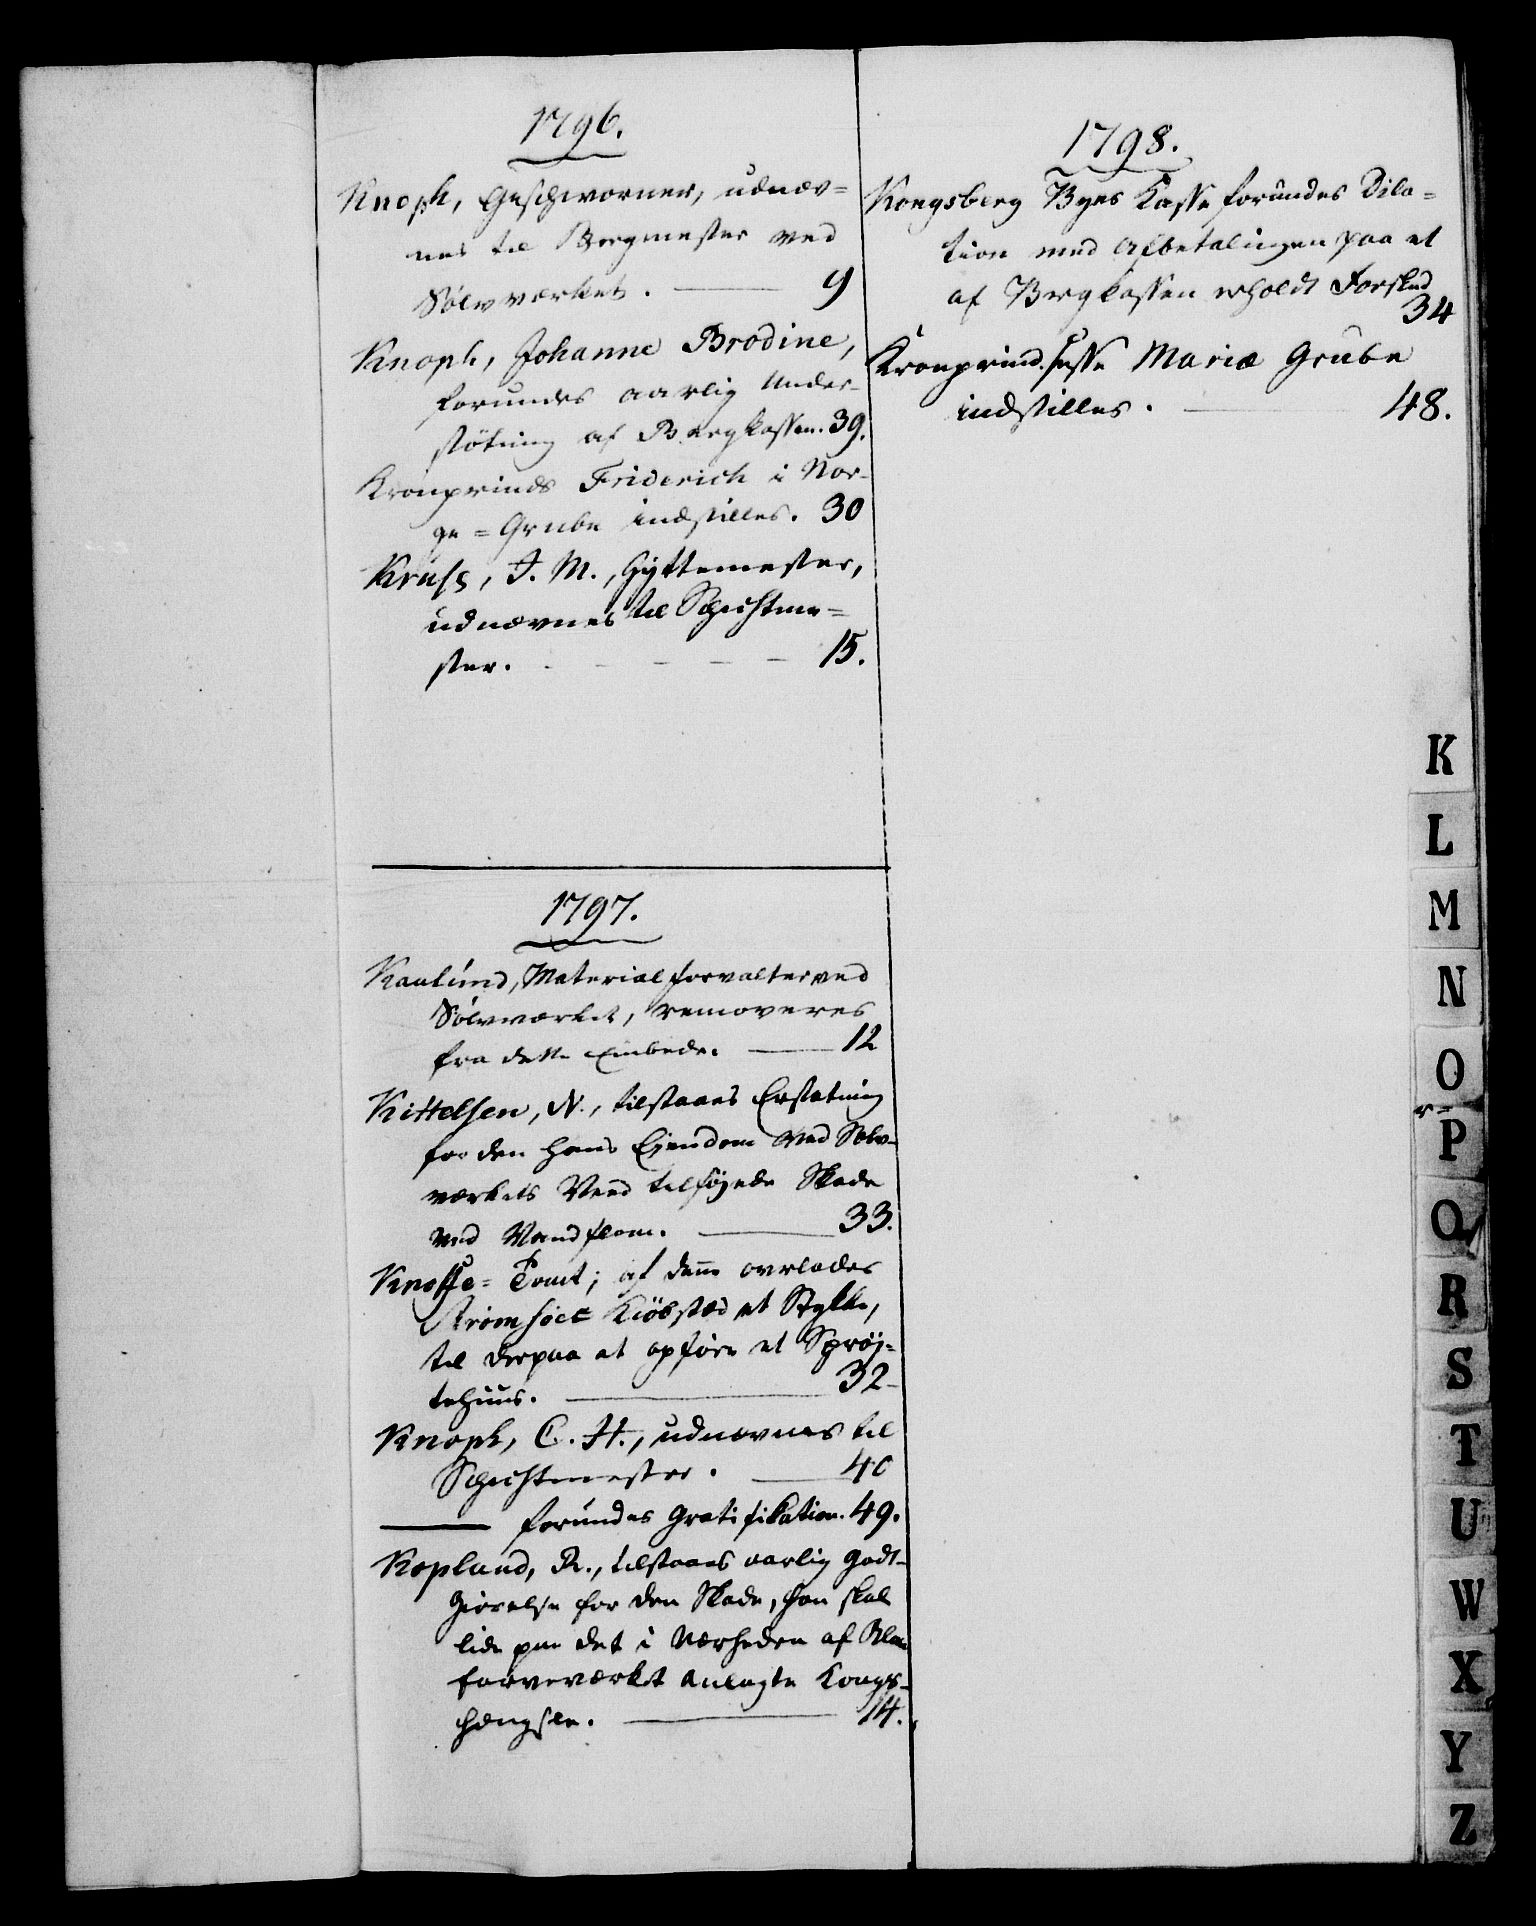 1796.
Knoph, Geschworner, udnæv=
nes til Bergmester ved
Sølvværket. 9
Knoph, Johanne Brodine,
forundes aarlig Under-
støtning af Bergkassen. 39.
Kronprinds Friderich i Nor-
ge=Grube indstilles. 30
Kruse, J. M., Hyttemester,
udnævnes til Schichtme=
ster. 15.
1797.
Kaalund, Materialforvalter ved
Sølvværket, removeres
fra dette Embede. 12
Kittelsen, N., tilstaaes Erstatning
for den hans Eiendom ved Sølv-
værkets Vand tilføiede Skade
ved Vandflom. 33.
Knoffe= Tomt; af denne overlades
Strømsøe Kiöbstæd et Stykke,
til derpaa at opføre et Sprøi-
tehuus. 32-
Knoph, C. H., udnævnes til
Schichtmester. 40
forundes Gratifikation. 49.
Kopland, R., tilstaaes aarlig Godt-
giørelse for den Skade, han skal
lide paa det i Nærheden af Blaa
farveværket anlagte Konge-
hængsle. 14.
1798.
Kongsberg Byes Kasse forundes Dila=
tion med Afbetalingen paa et
af Bergkassen erholdt Forskud
34
Kronprindsesse Mariæ Grube
indstilles. 48.
K
L
M
N
O
P
Q
R
S
T
U
W
X
Y
Z